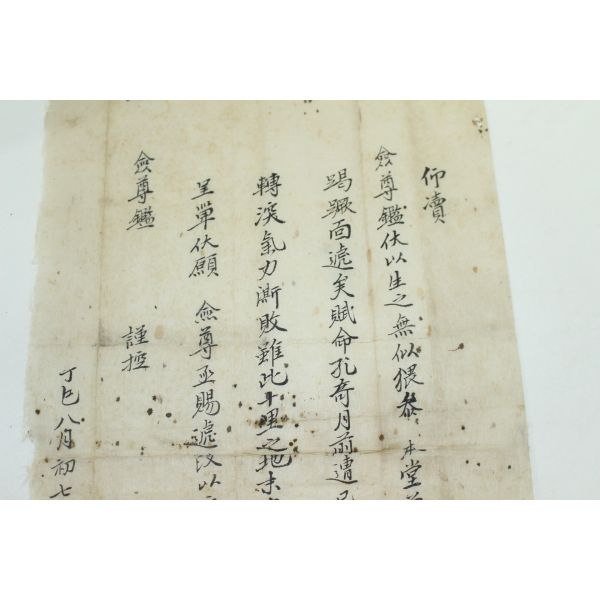 仰瀆
僉尊鑑伏以生之無似猥叅 本堂
踢蹶而遞矣賦命孔奇月前遭
轉深氣力澌敗雖此十里之地未
呈單伏願 僉尊亟賜處汝以
僉尊鑑 謹控
丁巳八月初七